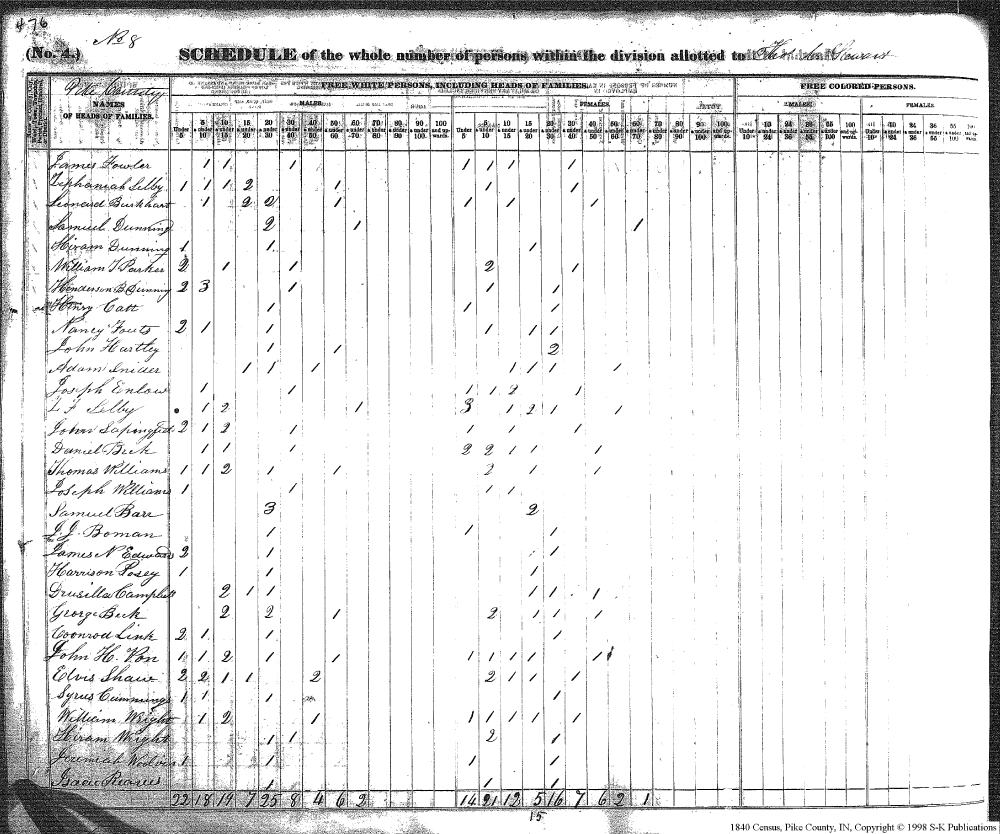 476
No 8
(No. 4.) SCHEDULE of the whole number of persons within the division allotted to
Pike County
FREE WHITE PERSONS, INCLUDING HEADS OF FAMILIES.
FREE COLORED PERSONS.
NAMES OF HEADS OF FAMILIES.
MALES. FEMALES. MALES. FEMALES.
Under 5 5 & under 10 10 & under 15 15 & under 20 20 & under 30 30 & under 40 40 & under 50 50 & under 60 60 & under 70 70 & under 80 80 & under 90 90 & under 100 100 and upwards.
James Fowler 1 1 1 1 1 1 1
Zephaniah Selby 1 1 1 2 1 1 1
Leonard Burkhart 1 2 2 1 1 1 1
Samuel Dunning 2 1 1
Hiram Dunning 1 1 1
William T Parker 2 1 1 2 1
Henderson B Dunning 2 3 1 1 1
Henry Catt 1 1 1
Nancy Fouts 2 1 1 1 1 1
John Hartley 1 1 2
Adam Snider 1 1 1 1 1 1 1
Joseph Enlow 1 1 1 1 2 1
L F Selby 1 2 1 3 1 2 1 1
John 2 1 2 1 1 1 1
Daniel Beck 1 1 1 2 2 1 1 1
Thomas Williams 1 1 2 1 1 2 1 1
Joseph Williams 1 1 1 1
Samuel Barr 3 2
J. J. Boman 1 1 1
James N Edwards 2 1 1
Harrison Posey 1 1 1
Drusilla Campbell 2 1 1 1 1 1
George Beck 2 2 1 2 1 1 1
Coonrod Link 2 1 1 1
John H. Von 1 1 2 1 1 1 1 1 1 1
Elvis Shaw 2 2 1 1 2 2 1 1 1
Syrus Cummings 1 1 1 1
William Wright 1 2 1 1 1 1 1 1
Hiram Wright 1 1 2 1
Jeremiah 1 1 1 1
Isaac Reaves 1 1 1
22 18 19 7 25 8 4 6 2 14 21 12 5 16 7 6 2 1
15
1840 Census, Pike County, IN, Copyright © 1998 S-K Publications